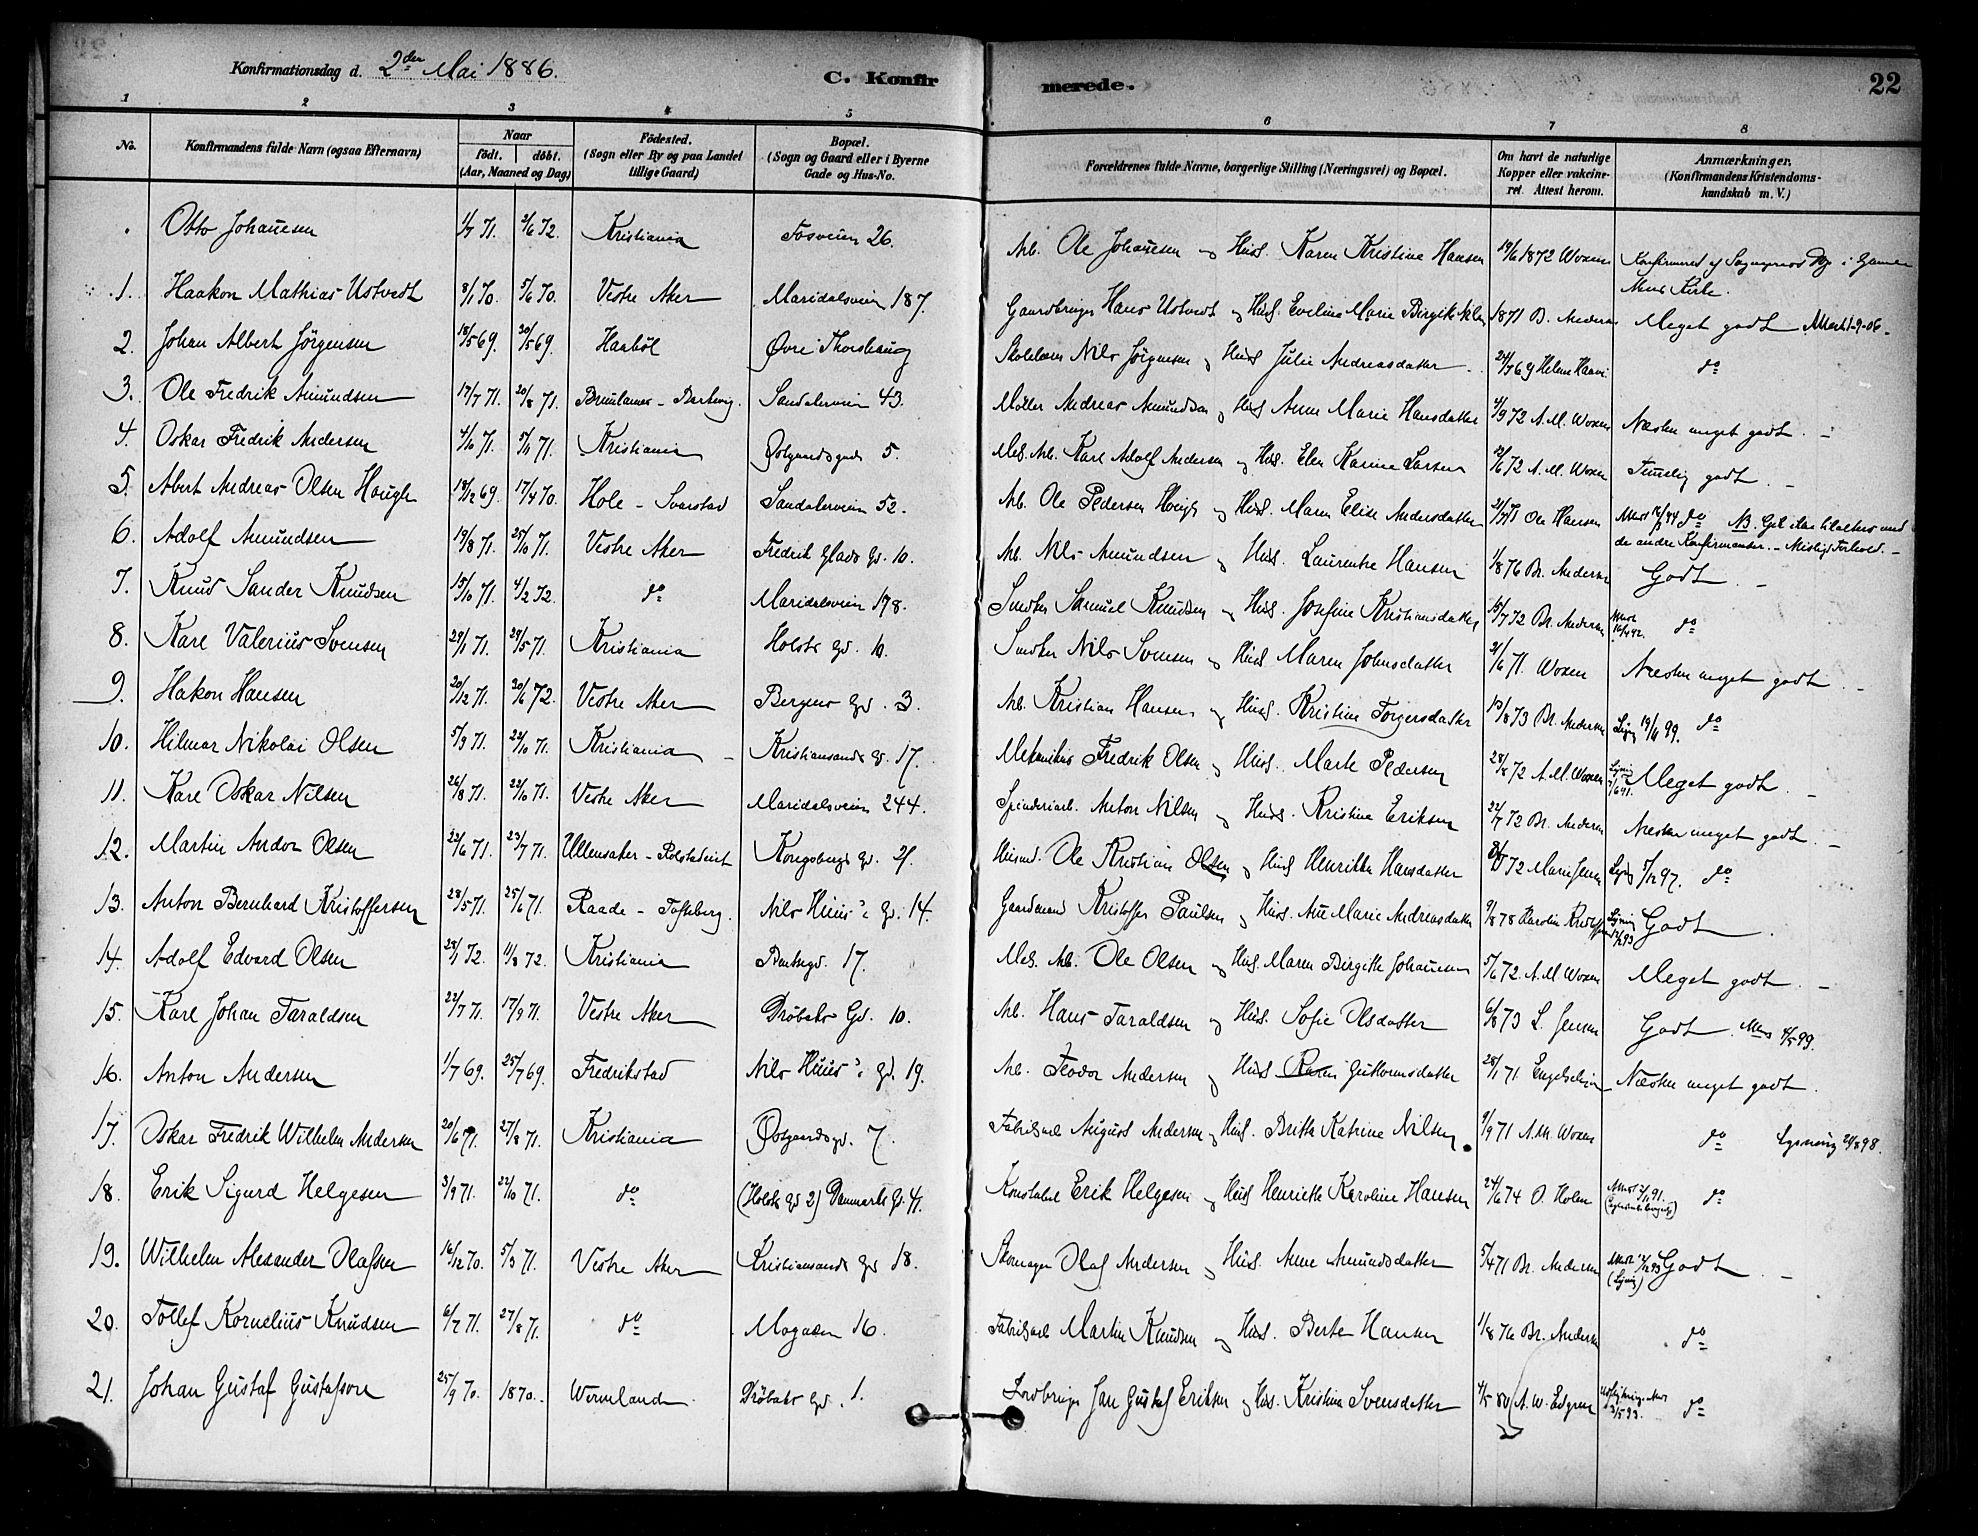 Konfirmationsdag d. 2den Mai 1886.
C. Konfirmerede.
22
1 2 3 4 5 6 7 8
No.
Konfirmandens fulde Navn (ogsaa Efternavn)
Naar
födt. döbt.
(Aar, Maaned og Dag)
Födested.
(Sogn eller By og paa Landet
tillige Gaard)
Bopæl.
(Sogn og Gaard eller i Byerne
Gade og Hus-No.
Forældrenes fulde Navne, borgerlige Stilling (Næringsvei) og Bopæl.
Om havt de naturlige
Kopper eller vakcine-
ret. Attest herom.
Anmærkninger.
(Konfirmandens Kristendoms-
kundskab m. V.)
Otto Johansen 1/7 71. 2/6 72. Kristiania Fosveien 26. Arb. Ole Johansen og Hust. Karen Kristine Hansen 19/6 1872 Woxen Konfirmeret af Sognepræst i Gamle
Akers Kirke.
1. Haakon Mathias Ustvedt 8/1 70. 5/6 70. Vestre Aker Maridalsveien 187. Gaardbruger Hans Ustvedt og Hust. Eveline Marie Birgitte 1871 B. Andersen Meget godt Attest 1-9-06.
2. Johan Albert Jörgensen 18/5 69. 30/5 69. Haaböl Øvre Thorshaug Nils Jörgensen og Hust. Julie Andreasdatter 24/7 69 Helene do
3. Ole Fredrik Amundsen 17/7 71. 20/8 71. Sandakerveien 43. Möller Andreas Amundsen og Hust. Anne Marie Hansdatter 4/9 72 A. M. Woxen Næsten meget godt.
4. Oskar Fredrik Andersen 4/10 71. 5/11 71. Kristiania Østgaardsgade 5. Mek. Arb. Karl Adolf Andersen og Hust. Elen Karine Larsen /6 72 A. M. Woxen Temmelig godt.
5. Abert Andreas Olsen Hough 18/12 69. 17/4 70. Hole - Svarstad Sandakerveien 52. Arb. Ole Pedersen Hough og Hust. Maren Elise Andersdatter 21/7 71 Ole Hansen Attest do NB. Gik ikke tilalters med
de andre Konfirmanter. - Misligt Forhold.
6. Adolf Amundsen 19/8 71. 25/10 71. Vestre Aker Fredrik Glads Gd. 10. Arb. Nils Amundsen og Hust. Laurentze Hansen 1/8 76 Br. Andersen Godt.
7. Knud Sander Knudsen 15/10 71. 4/2 72. do Maridalsveien 178. Snedker Samuel Knudsen og Hust. Josefine Kristiansdatter 15/7 72 Br. Andersen Attest do
8. Karl Valerius Svensen 29/1 71. 29/5 71. Kristiania Holsts gd. 10. Snedker Nils Svensen og Hust. Maren Johnsdatter 21/6 71. Woxen Næsten meget godt.
9. Hakon Hansen 20/12 71. 20/6 72. Vestre Aker Bergens Gd. 3. Arb. Kristian Hansen og Hust. Kristine Torgersdatter 15/8 73 Br. Andersen 99. do
10. Hilmar Nikolai Olsen 5/9 71. 22/10 71. Kristiania Kristiansands G. 17. Mekanikus Fredrik Olsen og Hust. Marte Pedersen 28/8 72 A. M. Woxen Meget godt.
11. Karl Oskar Nilsen 26/8 71. 22/10 71. Vestre Aker Maridalsveien 244. Spinderiarb. Anton Nilsen og Hust. Kristine Eriksen 22/7 72 Br. Andersen Næsten meget godt.
12. Martin Andor Olsen 22/6 71. 23/7 71. Ullensaker Kongsbergs Gd. 21. Ole Kristian Olsen og Hust. Henrikke Hansdatter 72 Marie Jensen 5/12 97. do
13. Anton Bernhard Kristoffersen 28/5 71. 25/6 71. Raade - Tofteberg. Nils Huus's Gd. 14. Gaardmand Kristoffer Paulsen og Hust. Ane Marie Andreasdatter 9/8 78 Karolin Godt.
14. Adolf Edvard Olsen 28/1 72. 11/8 72. Kristiania 17. Mek. Arb. Ole Olsen og Hust. Maren Birgitte Johannesen 5/6 72 A. M Woxen Meget godt.
15. Karl Johan Taraldsen 22/7 71. 17/9 71. Vestre Aker Dröbaks Gd. 10. Arb. Hans Taraldsen og Hust. Sofie Olsdatter 6/8 73 L. Jensen Godt.
16. Anton Andersen 1/7 69. 25/7 69. Fredrikstad Nils Huus's Gd. 19. Arb. Teodor Andersen og Hust. Karen Guttormsdatter 28/1 71 Næsten meget godt.
17. Oskar Fredrik Wilhelm Andersen 20/6 71. 27/8 71. Kristiania Østgaardsgd. 7. Fabrikarb. August Andersen og Hust. Britta Katrine Nilsen 9/9 71 A. M. Woxen do Lysning 98.
18. Erik Sigurd Helgesen 3/9 71. 22/10 71. do (Holsts Gd 2) Danmarks Gd. 41. Konstabel Erik Helgesen og Hust. Henriette Karoline Hansen 24/6 74 O. Holm do
19. Wilhelm Alexander Olafsen 16/12 70. 5/3 71. Vestre Aker Kristiansands Gd 18. Skomager Olaf Andersen og Hust. Anne Amundsdatter 5/4 71 Br. Andersen Godt.
20. Tollef Kornelius Knudsen 6/7 71. 27/8 71. do Mogaden 16. Fabrikarb Martin Knudsen og Hust. Berte Hansen 1/8 76 Br. Andersen do
21. Johan Gustaf Gustafson 25/9 70. 1870. Wermland Dröbaks Gd. 1. Jordbruger Jan Gustaf Eriksen og Hust. Kristina Svensdatter 4/5 80 A. W. Edgren do